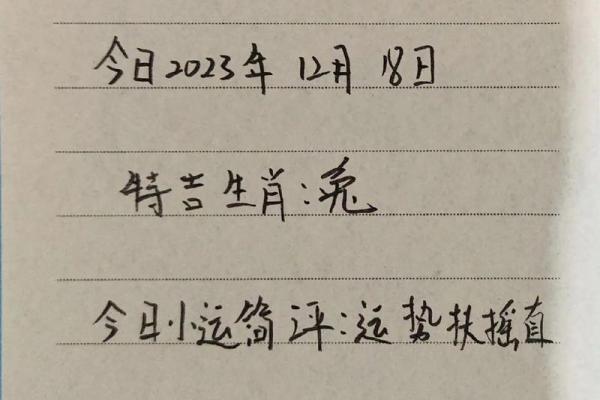 今日2023年 12月 18日
特吉生肖:兔
今日小运简评:运势扶摇直